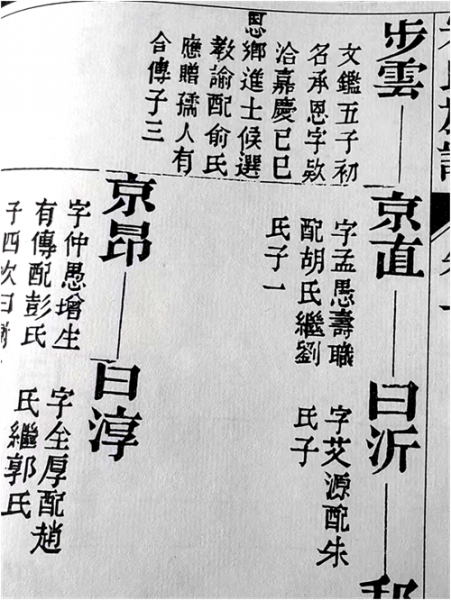 氏族譜
步雲
文鑑五子初
名承恩字欵
洽嘉慶已巳
恩鄉進士候選
教諭配俞氏
應贈孺人有
合傳子三
京直
字孟愚壽職
配胡氏繼劉
氏子一
曰沂
字艾源配朱
氏子
京昂
字仲愚增生
有傳配彭氏
子四次曰
曰淳
字全厚配趙
氏繼郭氏